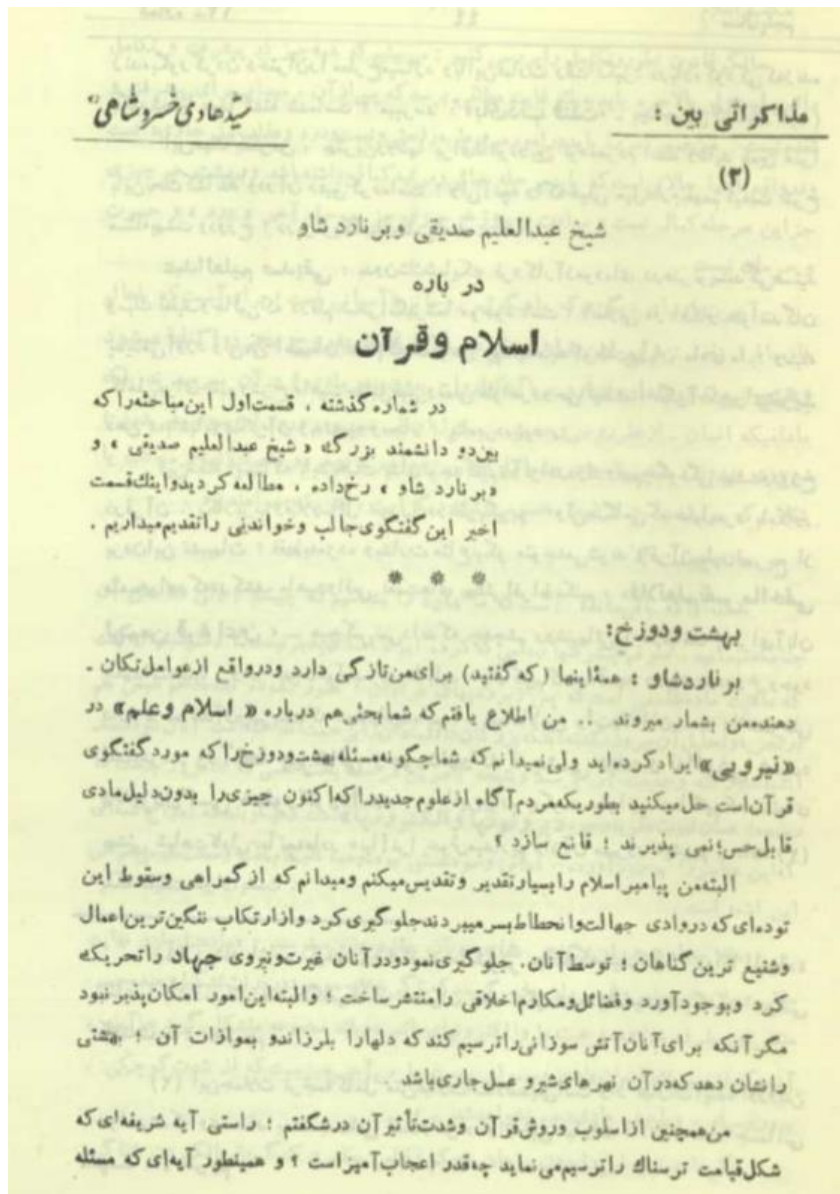 مذاکراتی بین :
سیدهادی خسروشاهی
(۲)
شیخ عبدالعلیم صدیقی و برنارد شاو
در باره
اسلام وقرآن
در شماره گذشته ، قسمت اول این مباحثه را که
بین دو دانشمند بزرگ « شیخ عبدالعلیم صدیقی » و
«برنارد شاو » رخ داده ، مطالعه کردید واینك قسمت
اخیر این گفتگوی جالب وخواندنی را تقدیم میداریم .
* * *
بهشت ودوزخ:
برناردشاو : همهٔ اینها (که گفتید) برای من تازگی دارد ودرواقع ازعوامل تکان ـ
دهنده من بشمار میروند .. من اطلاع یافتم که شما بحثی هم درباره « اسلام وعلم» در
«نیروبی» ایراد کرده اید ولی نمیدانم که شما چگونه مسئله بهشت ودوزخ را که مورد گفتگوی
قرآن است حل میکنید بطوریکه مردم آگاه ازعلوم جدید را که اکنون چیزی را بدون دلیل مادی
قابل حس؛ نمی پذیرند ؛ قانع سازد ؟
البته من پیامبر اسلام را بسیار تقدیر وتقدیس میکنم ومیدانم که از گمراهی وسقوط این
توده ای که دروادی جهالت وانحطاط بسر میبردند جلو گیری کرد واز ارتکاب ننگین ترین اعمال
وشنیع ترین گناهان ؛ توسط آنان. جلو گیری نمود ودر آنان غیرت ونیروی جهاد را تحریك
کرد وبوجود آورد وفضائل ومکارم اخلاقی را منتشر ساخت ؛ والبته این امور امکان پذیر نبود
مگر آنکه برای آنان آتش سوزانی را ترسیم کند که دلها را بلرزاند و بموازات آن ؛ بهشتی
را نشان دهد که در آن نهرهای شیر و عسل جاری باشد
من همچنین از اسلوب وروش قرآن وشدت تأثیر آن درشگفتم ؛ راستی آیه شریفه ای که
شکل قیامت ترسناك را ترسیم می نماید چه قدر اعجاب آمیز است ؟ و همینطور آیه ای که مسئله